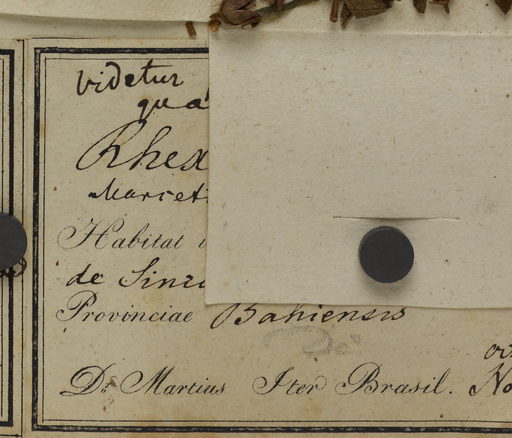 videtur
qua
Rhex
Marcet
Habitat i
de Sinco
Provinciae Bahiensis
Dr. Martius Iter Brasil. No